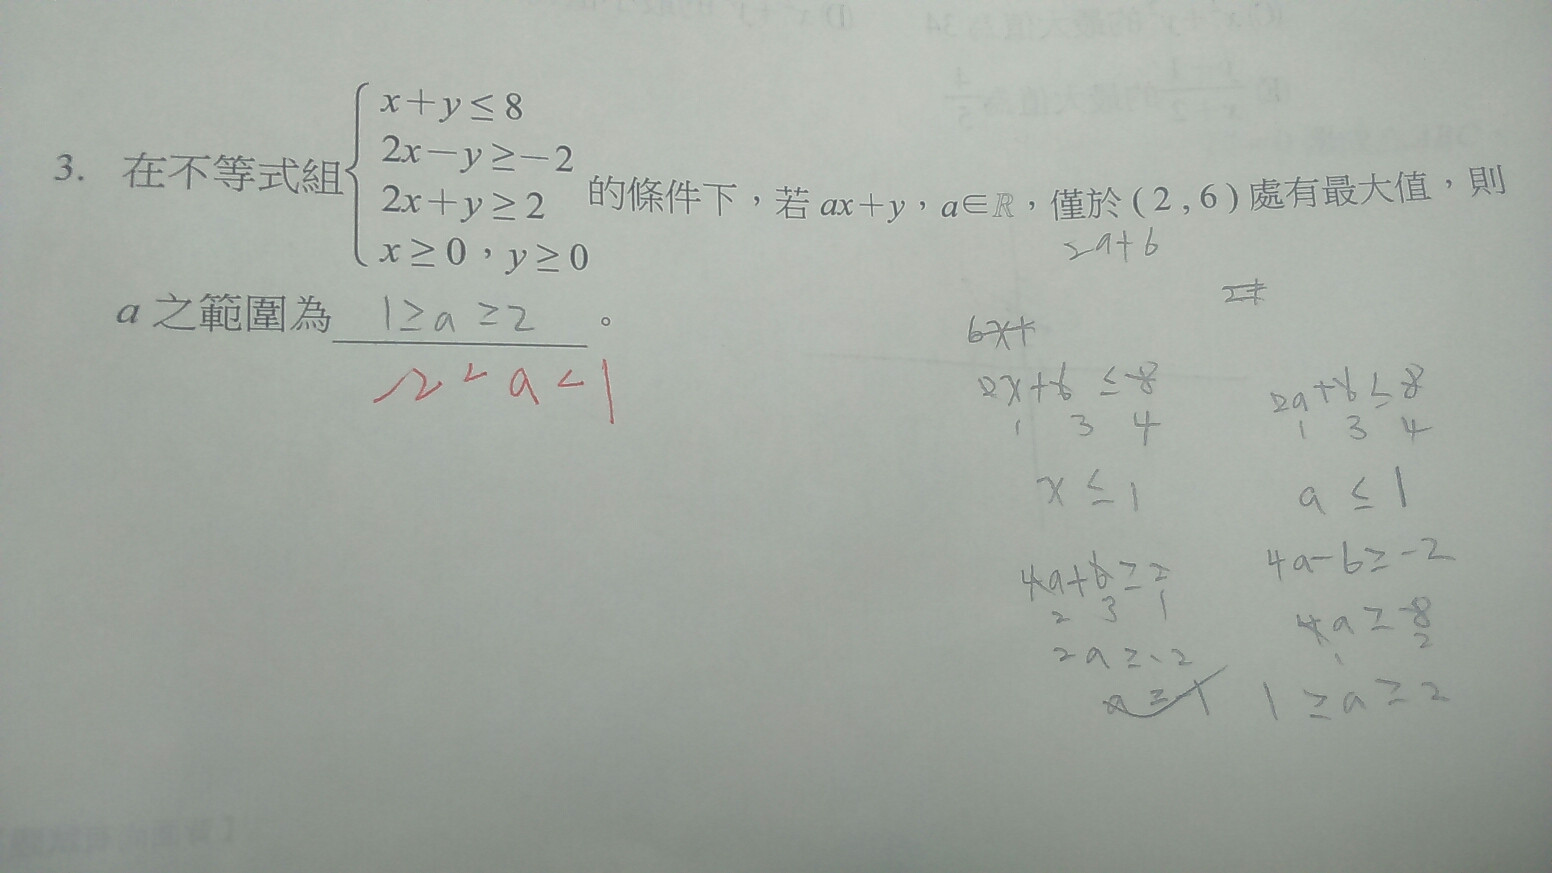 x+y≤8
2x-y≥-2
2x+y≥2
x≥0，y≥0
3. 在不等式組 的條件下，若 ax+y，a∈ℝ，僅於(2,6)處有最大值，則
2a+6
a 之範圍為 1≥a≥2 。
2<a<1
6x+
2x+6≤8
1 3 4
x≤1
4a+6≥2
2 3 1
2a≥-2
a≥-1
2a+6≤8
1 3 4
a≤1
4a-6≥-2
4a≥8
1 2
1≥a≥2